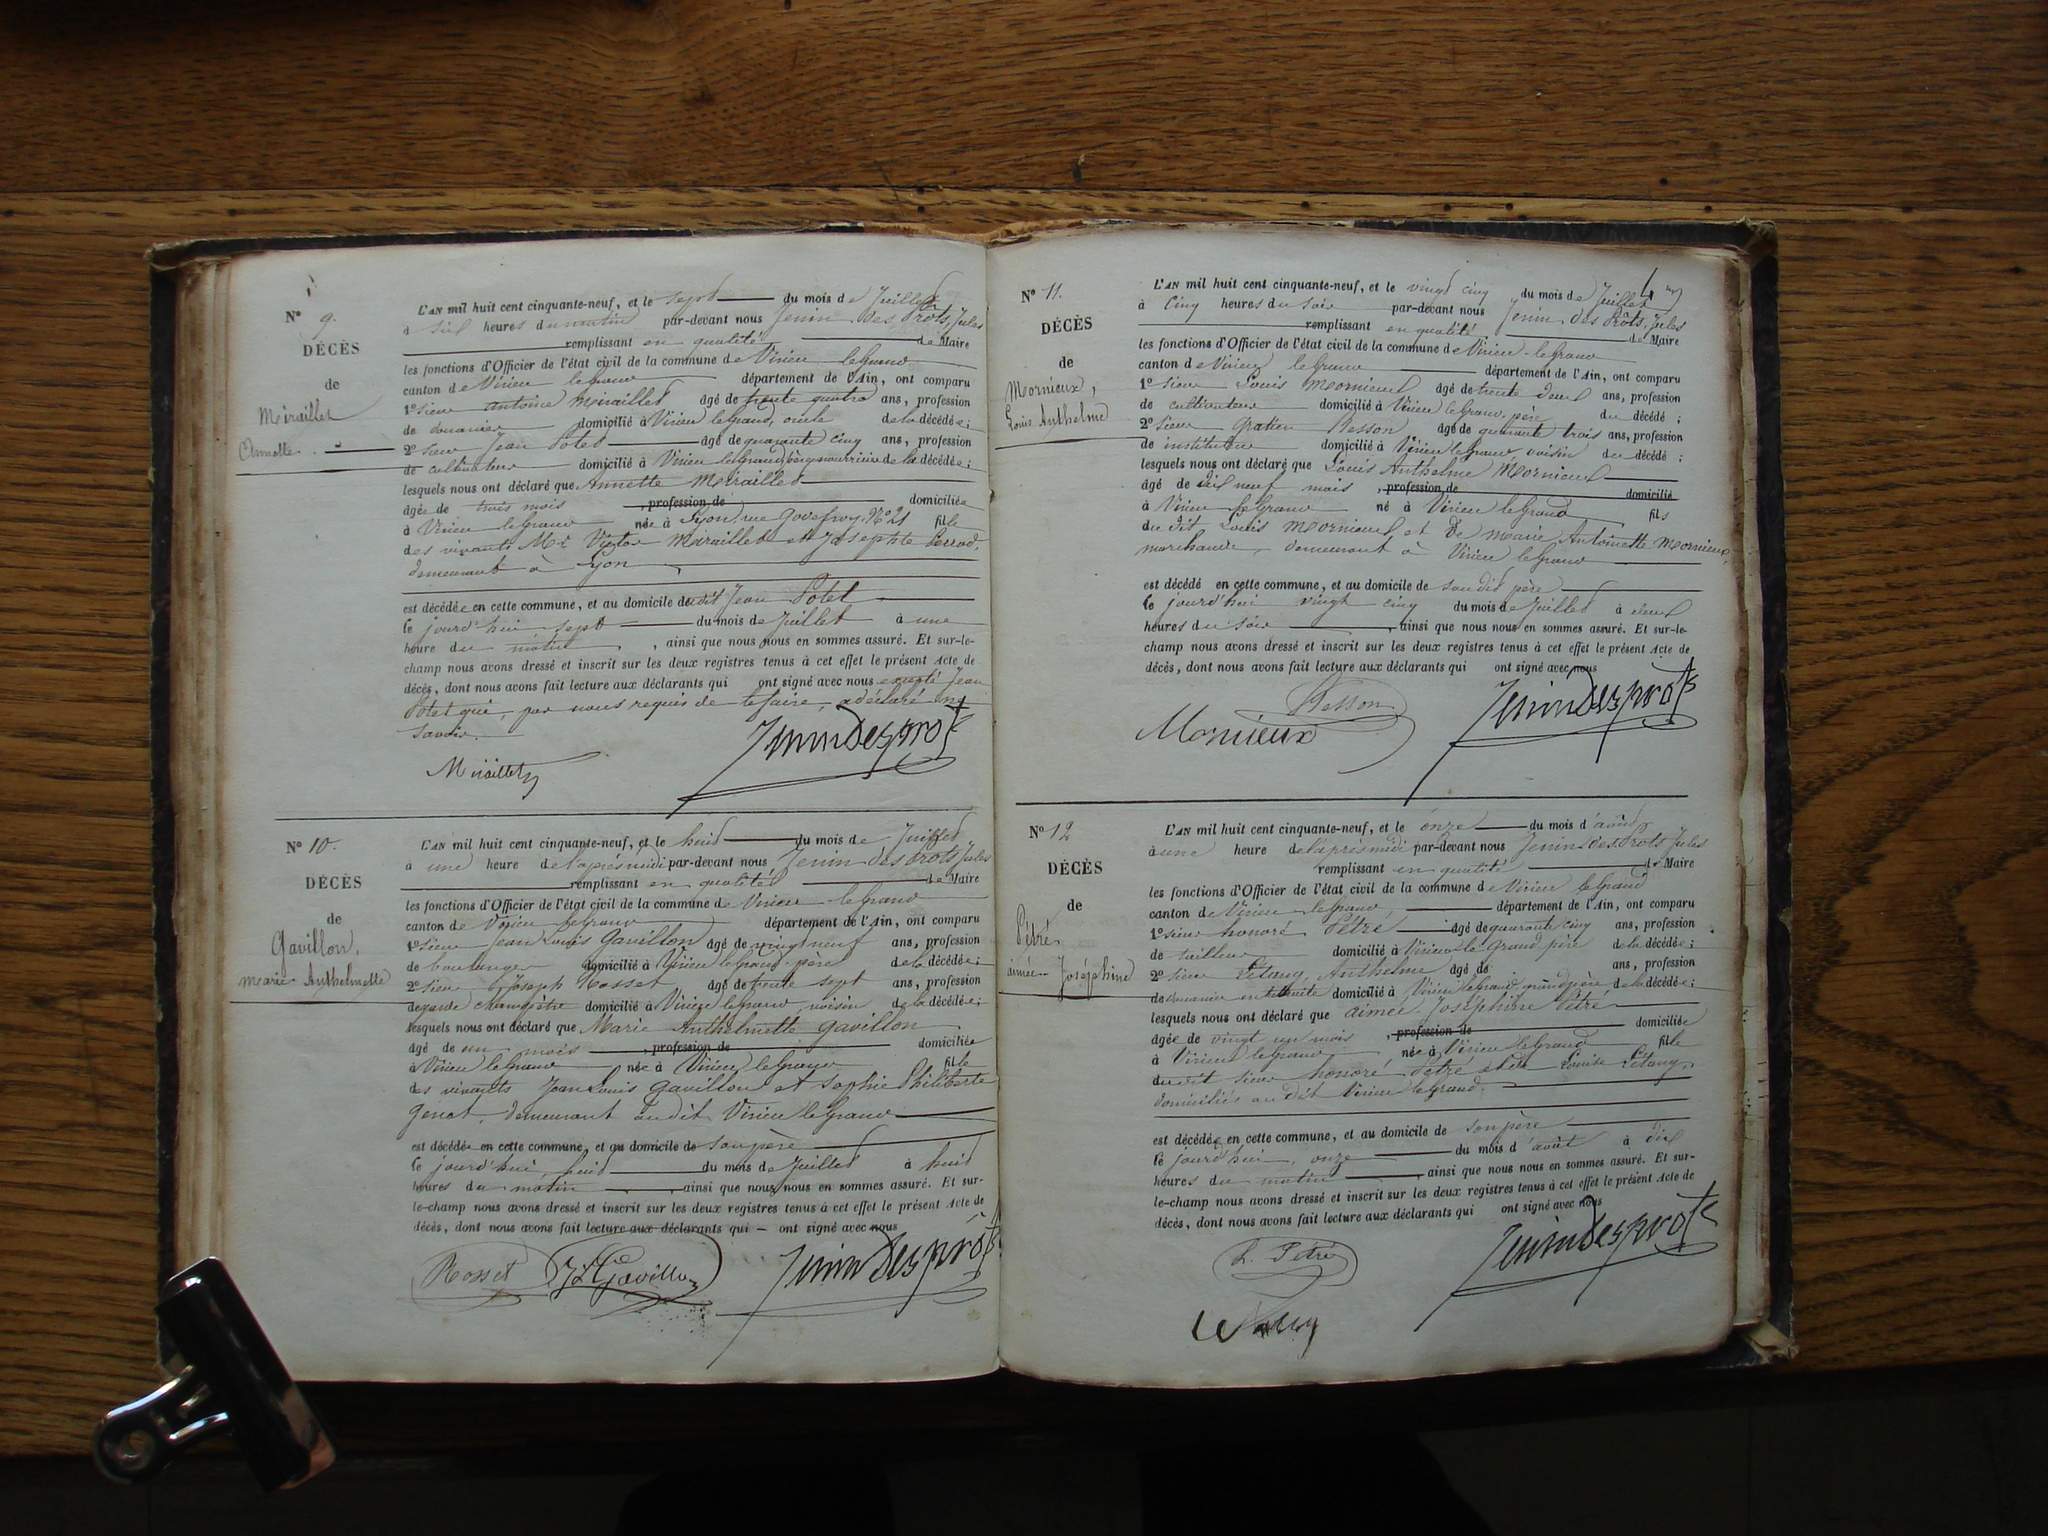 N° 9.
DÉCÈS
de
Miraillet
Annette
L'AN mil huit cent cinquante-neuf, et le sept du mois de Juillet
à six heures du matin par-devant nous Jenin des Prôts, Jules
remplissant en qualité de Maire
les fonctions d'Officier de l'état civil de la commune de Virieu legrand
canton de Virieu legrand département de l'Ain, ont comparu
1° sieur Antoine Miraillet âgé de trente quatre ans, profession
de douanier domicilié à Virieu legrand, oncle de la décédée;
2° sieur Jean Potet âgé de quarante cinq ans, profession
de cultivateur domicilié à Virieu legrand, père nourricier de la décédée;
lesquels nous ont déclaré que Annette Miraillet
âgée de trois mois, profession de domiciliée
à Virieu legrand née à Lyon, rue Godefroy, N° 21 fille
des vivants Mr Victor Miraillet et Josephte Perrod,
demeurant à Lyon,
est décédée en cette commune, et au domicile dudit Jean Potet
le jourd'hui sept du mois de Juillet à une
heure du matin, ainsi que nous nous en sommes assuré. Et sur-le-
champ nous avons dressé et inscrit sur les deux registres tenus à cet effet le présent Acte de
décès, dont nous avons fait lecture aux déclarants qui ont signé avec nous excepté Jean
Potet qui, par nous requis de le faire, a déclaré ne
savoir.
Miraillet
Jenin Des prôts
N° 10.
DÉCÈS
de
Gavillon,
Marie Anthelmette
L'AN mil huit cent cinquante-neuf, et le huit du mois de Juillet
à une heure de l'après midi par-devant nous Jenin des Prots, Jules
remplissant en qualité de Maire
les fonctions d'Officier de l'état civil de la commune de Virieu legrand
canton de Virieu legrand département de l'Ain, ont comparu
1° sieur Jean Louis Gavillon âgé de vingt neuf ans, profession
de boulanger domicilié à Virieu legrand, père de la décédée;
2° sieur Joseph Rosset âgé de trente sept ans, profession
de garde champêtre domicilié à Virieu legrand, voisin de la décédée;
lesquels nous ont déclaré que Marie Anthelmette Gavillon
âgé de un mois, profession de domiciliée
à Virieu legrand née à Virieu legrand fille
des vivants Jean Louis Gavillon et Sophie Philiberte
Genot, demeurant au dit Virieu legrand
est décédée en cette commune, et au domicile de son père
le jourd'hui huit du mois de Juillet à huit
heures du matin, ainsi que nous nous en sommes assuré. Et sur-
le-champ nous avons dressé et inscrit sur les deux registres tenus à cet effet le présent Acte de
décès, dont nous avons fait lecture aux déclarants qui ont signé avec nous
Rosset Gavillon Jenin Des prôts
N° 11.
DÉCÈS
de
Mornieux,
Louis Anthelme
L'AN mil huit cent cinquante-neuf, et le vingt cinq du mois de Juillet
à cinq heures du soir par-devant nous Jenin des Prôts, Jules
remplissant en qualité de Maire
les fonctions d'Officier de l'état civil de la commune de Virieu-legrand
canton de Virieu legrand département de l'Ain, ont comparu
1° sieur Louis Mornieux âgé de trente deux ans, profession
de cultivateur domicilié à Virieu legrand, père du décédé;
2° sieur Gratien Besson âgé de quarante trois ans, profession
de instituteur domicilié à Virieu legrand, voisin du décédé;
lesquels nous ont déclaré que Louis Anthelme Mornieux
âgé de dix neuf mois, profession de domicilié
à Virieu legrand né à Virieu legrand fils
du dit Louis Mornieux et de Marie Antoinette Mornieux,
marchande, demeurant à Virieu legrand
est décédé en cette commune, et au domicile de son dit père
le jourd'hui vingt cinq du mois de Juillet à deux
heures du soir, ainsi que nous nous en sommes assuré. Et sur-le-
champ nous avons dressé et inscrit sur les deux registres tenus à cet effet le présent Acte de
décès, dont nous avons fait lecture aux déclarants qui ont signé avec nous
Besson
Mornieux Jenin Des prôts
N° 12
DÉCÈS
de
Pétré
aimée Joséphine
L'AN mil huit cent cinquante-neuf, et le onze du mois d'août
à une heure de l'après midi par-devant nous Jenin des Prots Jules
remplissant en qualité de Maire
les fonctions d'Officier de l'état civil de la commune de Virieu legrand
canton de Virieu legrand, département de l'Ain, ont comparu
1° sieur honoré Pétré âgé de quarante cinq ans, profession
de tailleur domicilié à Virieu le grand père de la décédée;
2° sieur Létang, Anthelme âgé de ans, profession
de douanier en retraite domicilié à Virieu legrand, grand père de la décédée;
lesquels nous ont déclaré que aimée Joséphine Pétré
âgée de vingt un mois, profession de domiciliée
à Virieu legrand née à Virieu legrand fille
du dit sieur honoré Pétré et de Louise Létang,
domiciliés au dit Virieu legrand.
est décédée en cette commune, et au domicile de son père
le jourd'hui, onze du mois d'août à dix
heures du matin, ainsi que nous nous en sommes assuré. Et sur-
le-champ nous avons dressé et inscrit sur les deux registres tenus à cet effet le présent Acte de
décès, dont nous avons fait lecture aux déclarants qui ont signé avec nous
h. Pétré Jenin Des prôts